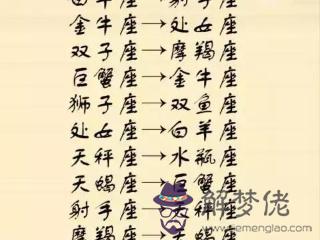 金牛座→处女座
双子座→摩羯座
巨蟹座→金牛座
狮子座→双鱼座
处女座→白羊座
天秤座→水瓶座
天蝎座→巨蟹座
射手座→天秤座
摩羯座→天
解梦佬
www.jiemenglao.com